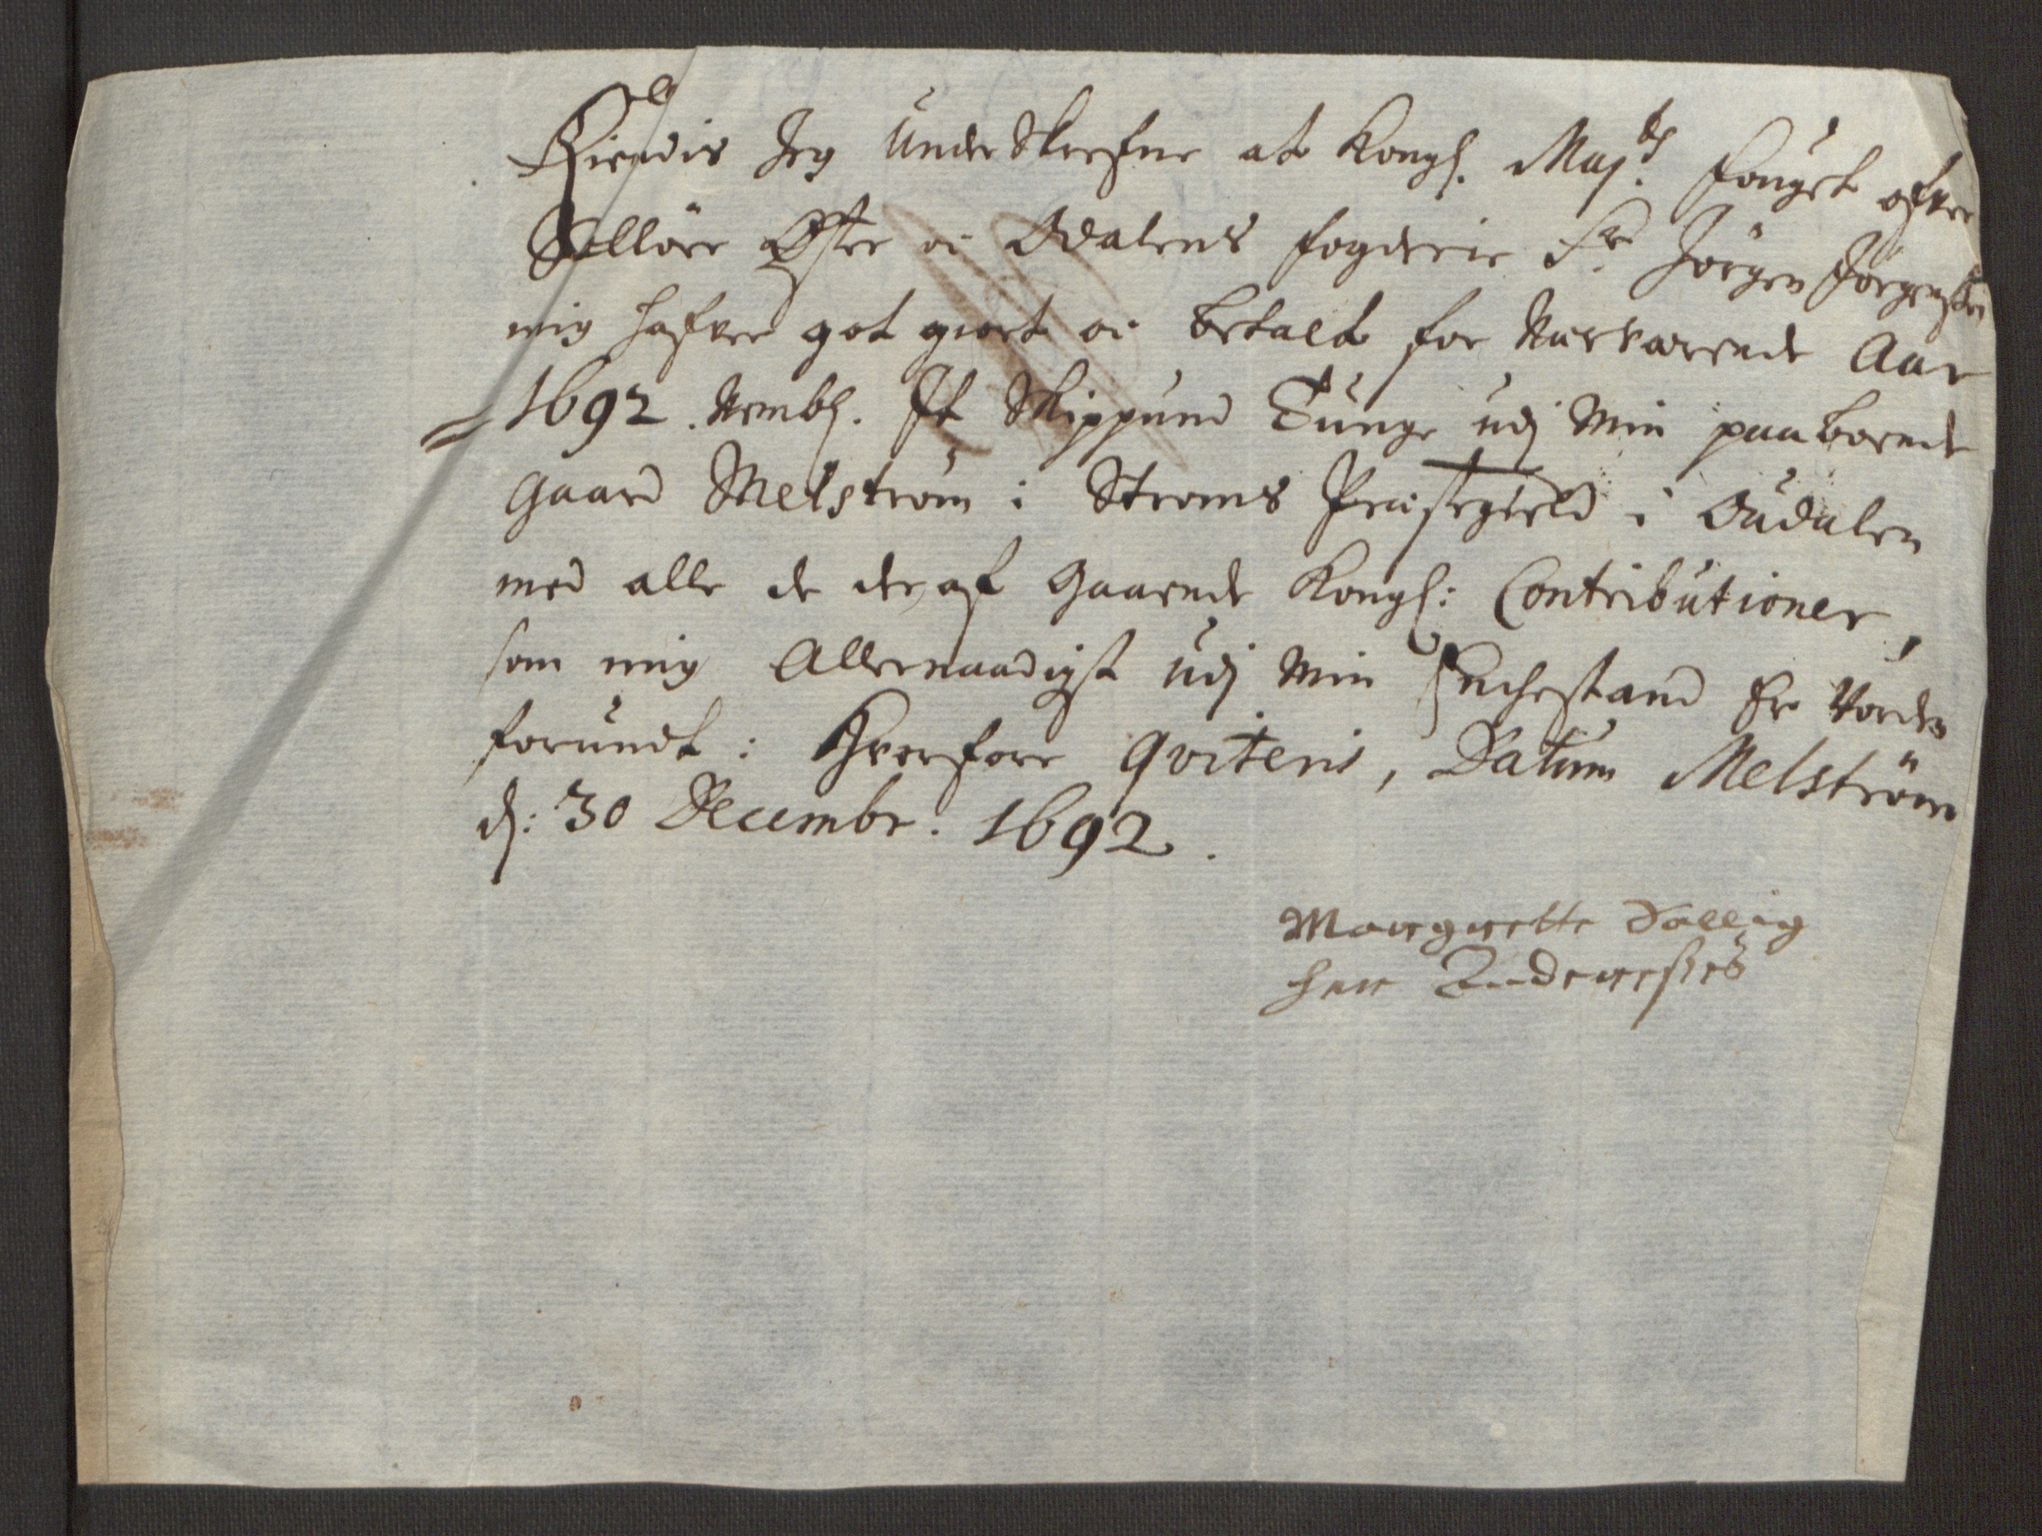 Kiendis Jeg Underskrefne at Kongl. Maj.ts fouget ofver
Sollöer Øster oc Odalens fogderie Sr. Jörgen Jörgensen
mig hafver got giort oc betalt for Nærværende Aar
1692. Nembl. It Skippund Tunge udj Min paaboende
gaard Melström i Stroms Præstegield i Oudalen
med alle de der af gaaende Kongl: Contributioner,
som mig Allernaadigst udj Min Enchestand Er Vorden
forundt: Hvorfore qviteris, Datum Melström
d: 30 Decembr. 1692.
Maargrette
Sallig
her Anderesses